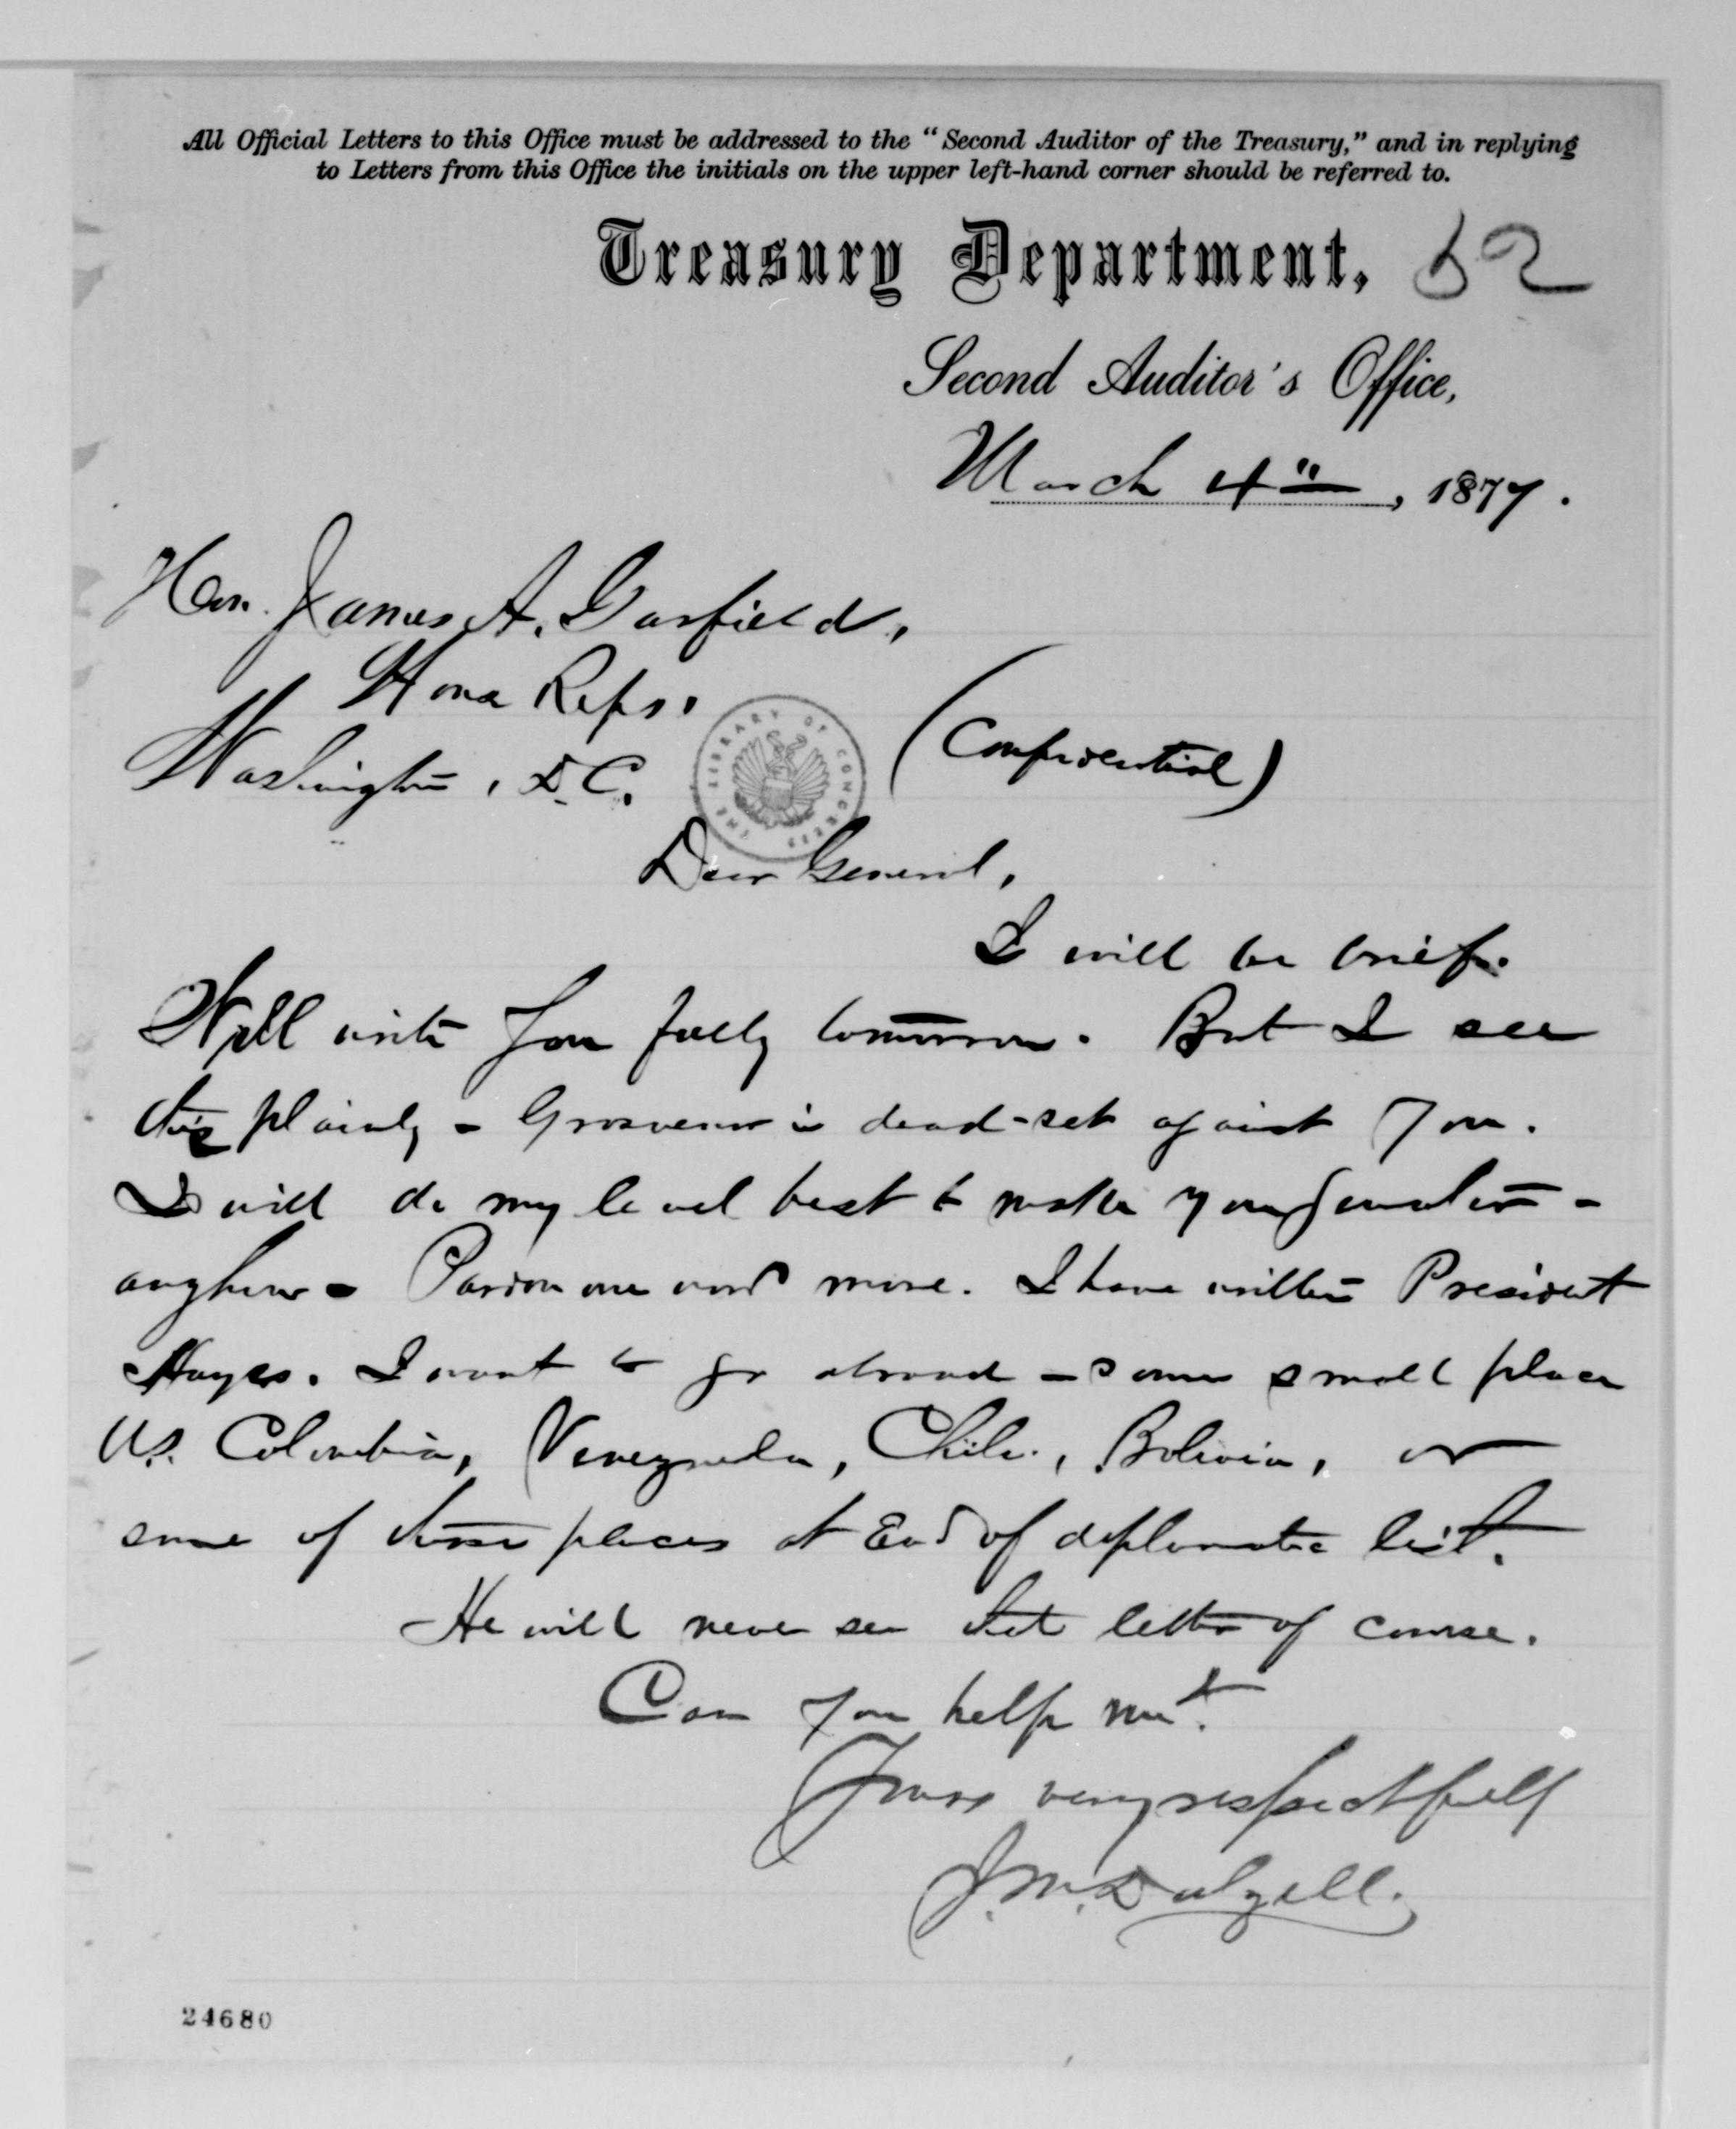 All Official Letters to this Office must be addressed to the "Second Auditor of the Treasury," and in replying
to Letters from this Office the initials on the upper left-hand corner should be referred to.
Treasury Department, 52
Second Auditor's Office,
March 4", 1877.
Hon. James A. Garfield,
House Reps.
Washington, D.C.
(Confidential)
THE LIBRARY OF CONGRESS
Dear General,
I will be brief.
Will write you fully tomorrow. But I see
this plainly - Grosvenor is dead-set against you.
I will do my level best to make you Senator -
anyhow - Pardon one word more. I have written President
Hayes. I want to go abroad - some small place
U.S. Colombia, Venezuela, Chile, Bolivia, or
some of those places at End of diplomatic list.
He will never see that letter of course.
Can you help me?
Yours very respectfully
J.M. Dalzell.
24680